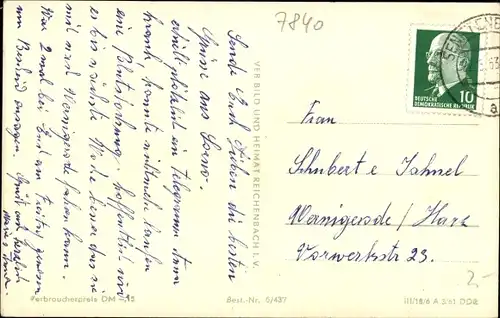 7840
Sende Euch Lieben die besten
Grüsse aus Sorno.
erhielt plötzlich ein Telegramm Anna
krank, konnte nicht
eine Blutstockung. hoffentlich wird
es bis nächste Woche besser das sie
mit nach Wernigerode fahren kann.
War 2 mal bei Euch am Freitag gewesen
um Bescheid zusagen. Gruß
VEB BILD UND HEIMAT REICHENBACH I. V.
SENFTENBE
63
a
DEUTSCHE
DEMOKRATISCHE REPUBLIK
10
Frau
Schubert e Jahnel
Wernigerode / Harz
Vorwerkstr 23.
2.-
Verbraucherpreis DM -,15
Best.-Nr. 6/437
III/18/6 A 5/61 DDR